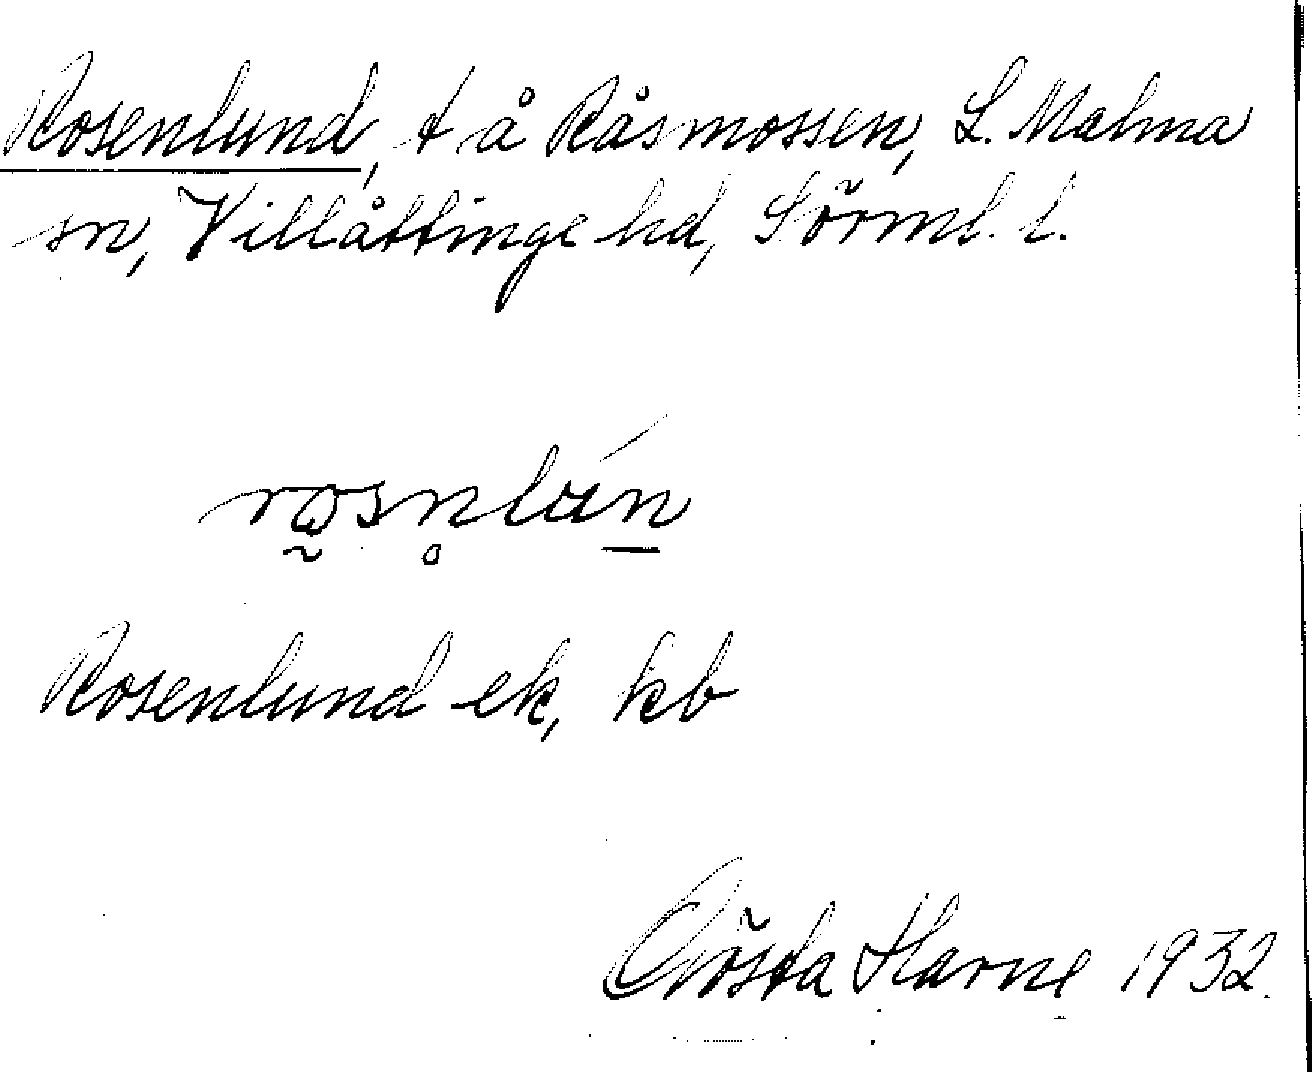 Rosenlund, t å Råsmossen, L. Malma
sn, Villåttinge hd, Sörml. l.
rosnlún
Rosenlund ek, kb
Gösta Harne 1932.